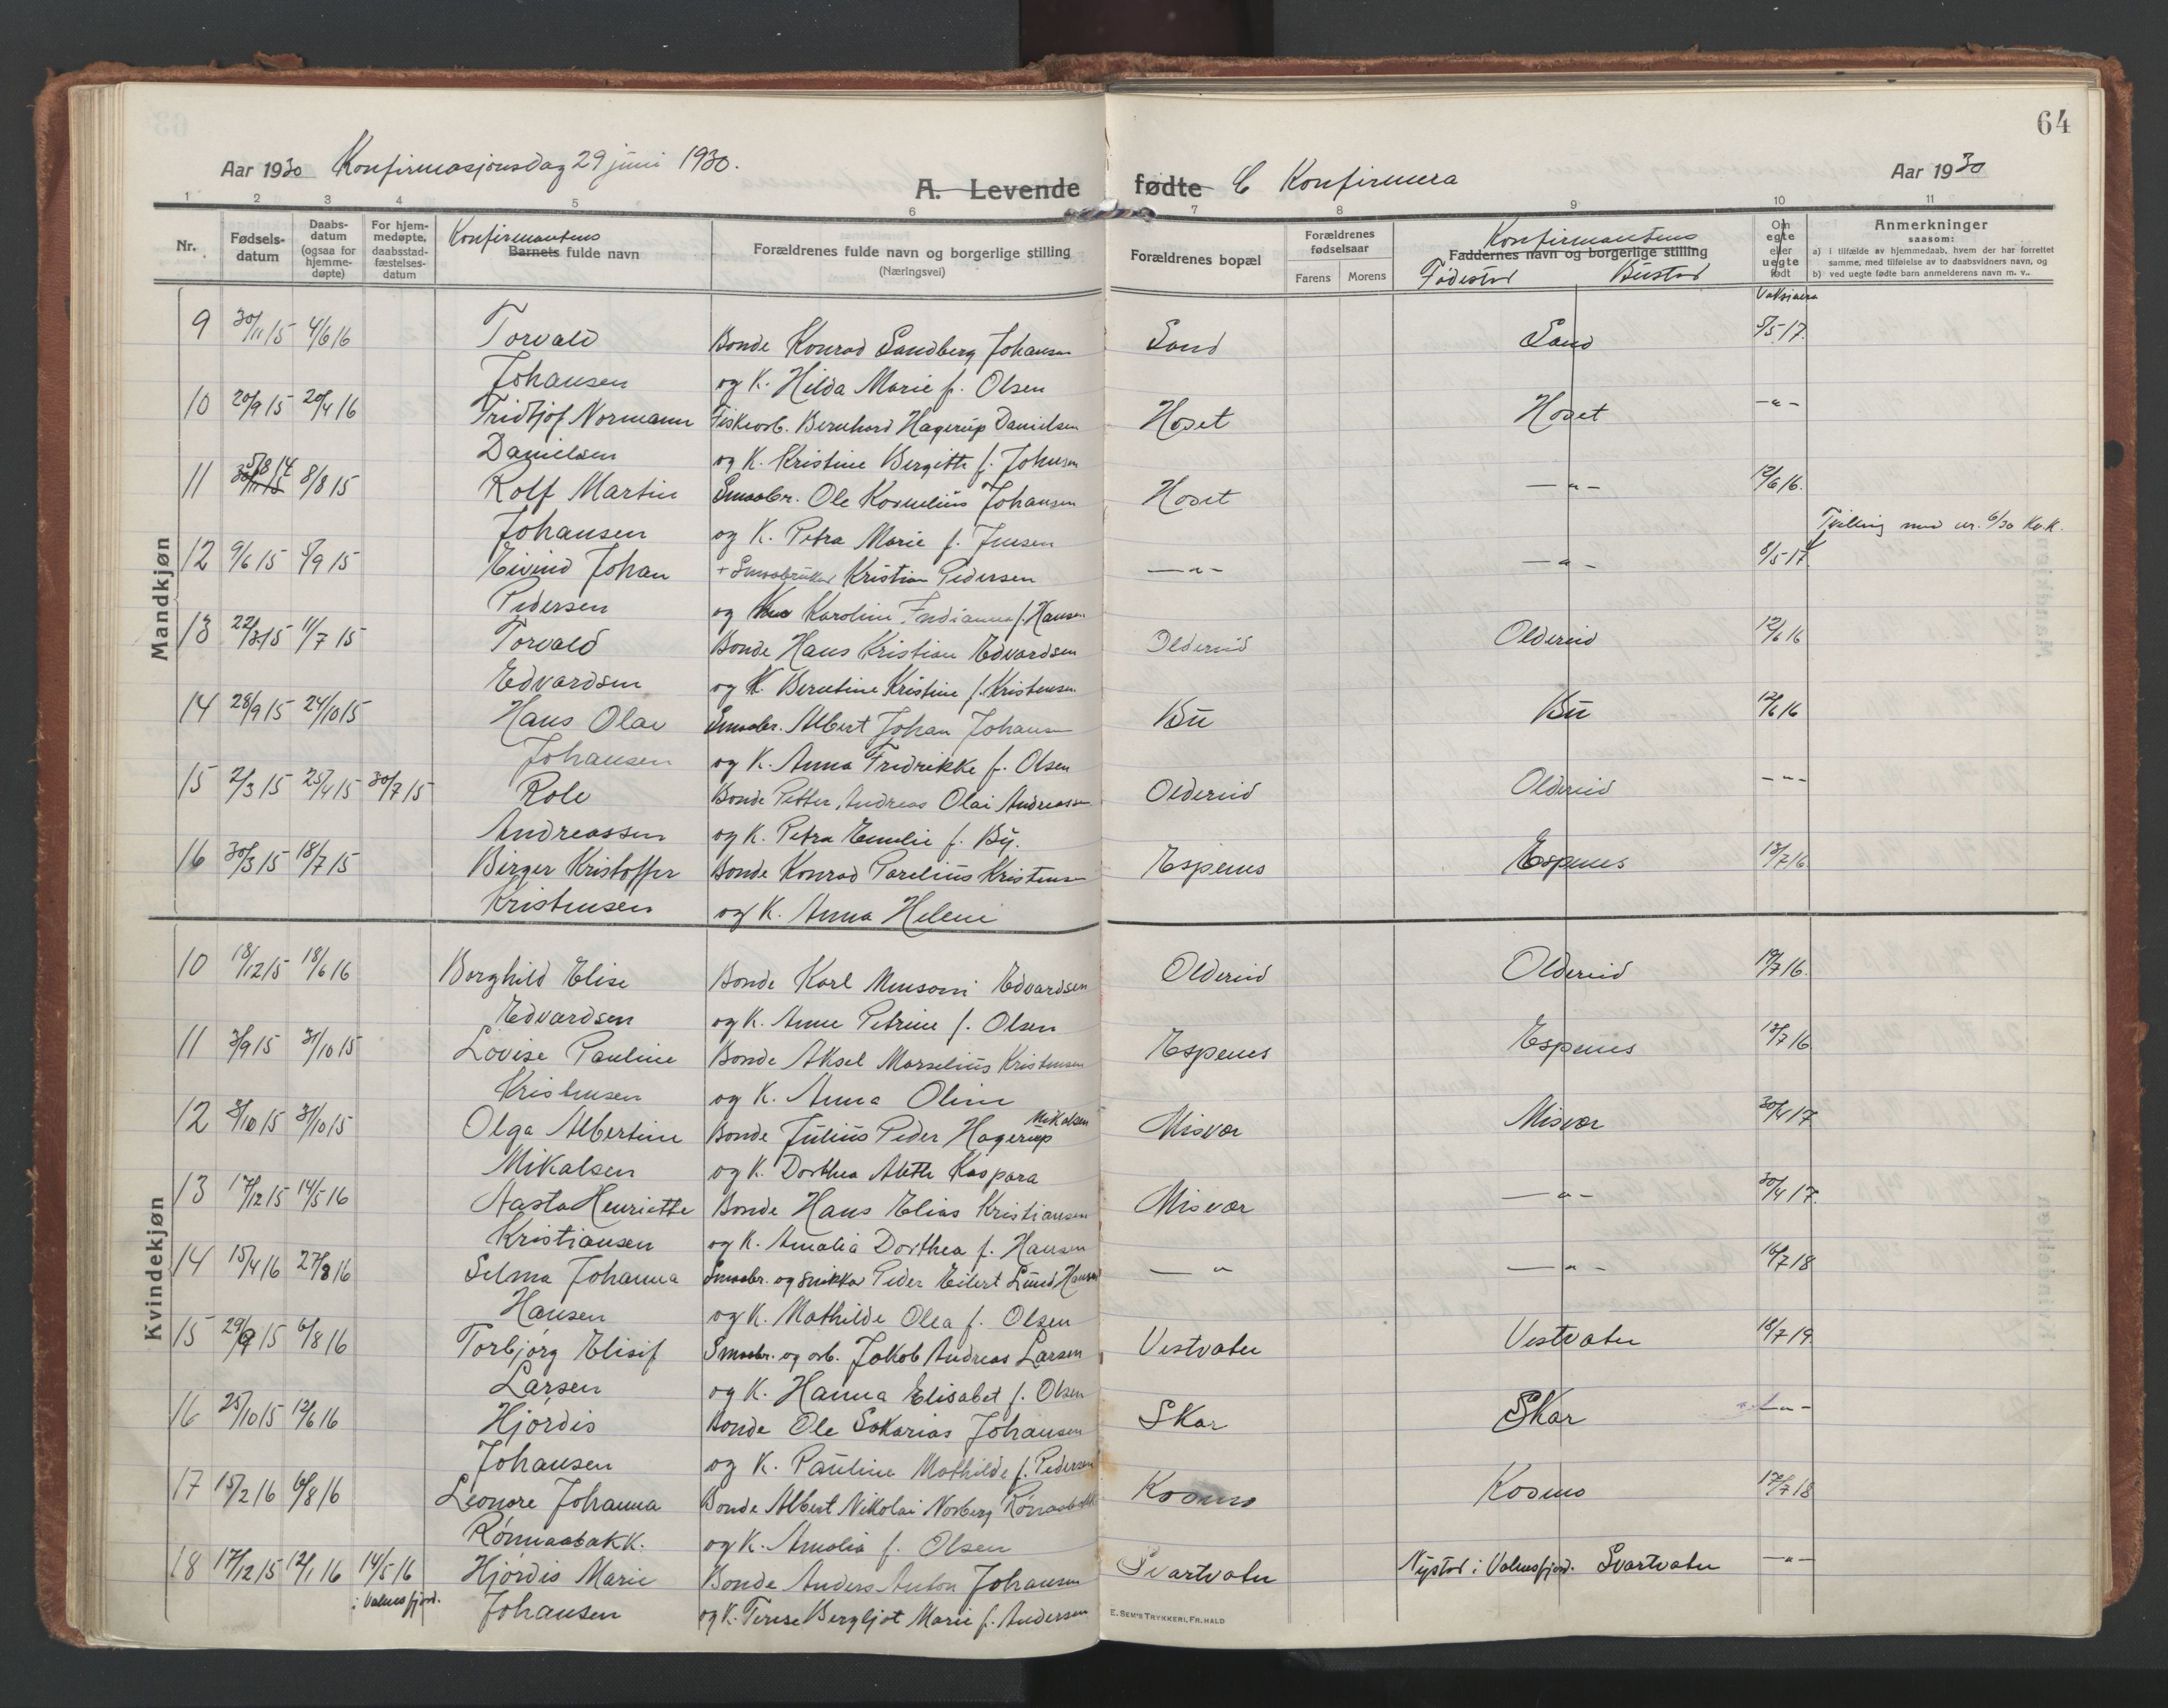 64
Aar 1930 Konfirmasjonsdag 29 juni 1930.
A. Levende fødte C Konfirmera
Aar 1930
1 2 3 4 5 6 7 8 9 10 11
Nr.
Fødsels-
datum
Daabs-
datum
(ogsaa for
hjemme-
døpte)
For hjem-
medøpte,
daabsstad-
fæstelses-
datum
Konfirmantens
Barnets fulde navn
Forældrenes fulde navn og borgerlige stilling
(Næringsvei)
Forældrenes bopæl
Forældrenes
fødselsaar
Farens Morens
Konfirmantens
Faddernes navn og borgerlige stilling
Fødestad Bustad
Om
egte
eller
uegte
født
Anmerkninger
saasom:
a) i tilfælde av hjemmedaab, hvem der har forrettet
samme, med tilføielse av to daabsvidners navn, og
b) ved uegte fødte barn anmelderens navn m. v..
Vaksinera
Mandkjøn
9 30/11 15 4/6 16 Torvald Bonde Konrad Sandberg Johansen Sand Sand 5/5 17.
Johansen og K. Hilda Marie f. Olsen
10 20/9 15 20/4 16 Fridtjof Normann Fiskeorb. Bernhard Hagerup Danielsen Hoset Hoset -"-
Danielsen og K. Kristine Bergitte f. Johnsen
11 5/8 14 30/11 15 8/8 15 Rolf Martin Smaabr. Ole Kornelius Johansen Hoset -"- 12/6 16.
Johansen og K. Petra Marie f. Jensen
Tvilling med nr. 6/30 Kv.k.
12 9/6 15 5/9 15 Eivind Johan + Smaabruker Kristian Pedersen -"- -"- 8/5 17
Pedersen og Karoline Indianna f. Hansen
13 22/3 15 11/7 15 Torvald Bonde Hans Kristian Edvardsen Oldereid Oldereid 12/6 16
Edvardsen og K. Berntine Kristine f. Kristensen
14 28/9 15 24/10 15 Hans Olav Smaabr. Albert Johan Johansen Bu Bu 12/6 16
Johansen og K. Anna Fredrikke f. Olsen
15 2/3 15 25/4 15 30/7 15 Rolv Bonde Petter Andreas Olai Andreassen Oldereid Oldereid -"-
Andreassen og K. Petra Emelie f. By.
16 30/3 15 18/7 15 Birger Kristoffer Bonde Konrad Parelius Kristensen Espenes Espenes 13/7 16
Kristensen og K. Anna Helene
Kvindekjøn
10 18/12 15 18/6 16 Borghild Elise Bonde Karl Mensoni Edvardsen Oldereid Oldereid 19/7 16.
Edvardsen og K. Anne Petrine f. Olsen
11 3/9 15 31/10 15 Lovise Pauline Bonde Aksel Marselius Kristensen Espenes Espenes 13/7 16
Kristensen og K. Anna Oline
12 3/10 15 31/10 15 Olga Albertine Bonde Julius Peder Hagerup Mikalsen Misvær Misvær 30/4 17
Mikalsen og K. Dorthea Aleth Kaspara
13 17/12 15 14/5 16 Aasta Henriette Bonde Hans Elias Kristiansen Misvær -"- 30/4 17.
Kristiansen og K. Amalia Dorthea f. Hansen
14 15/4 16 27/8 16 Selma Johanna Smaabr. og snikkar Peder Eilert Lund Hansen -"- -"- 16/7 18
Hansen og K. Mathilde Olea f. Olsen
15 29/9 15 6/8 16 Torbjørg Elisif Smaabr. og arb. Jakob Andreas Larsen Vestvatn Vestvatn 18/7 19.
Larsen og K. Hanna Elisabet f. Olsen
16 25/10 15 12/6 16 Hjørdis Bonde Ole Sakarias Johansen Skar Skar -"-
Johansen og K. Pauline Mathilde f. Pedersen
17 15/2 16 6/8 16 Leonore Johanna Bonde Albert Nikolai Norberg Rønnaabakk Kosmo Kosmo 17/7 18
Rønnaabakk. og K. Amalia f. Olsen
18 17/12 15 12/1 16 14/5 16 Hjørdis Marie Bonde Anders Anton Johansen Svartvatn Nystad i Valnesfjord. Svartvatn -"-
i Valnesfjord. Johansen og K. Terese Bergljot Marie f. Andersen
E. SEM'S TRYKKERI, FR. HALD